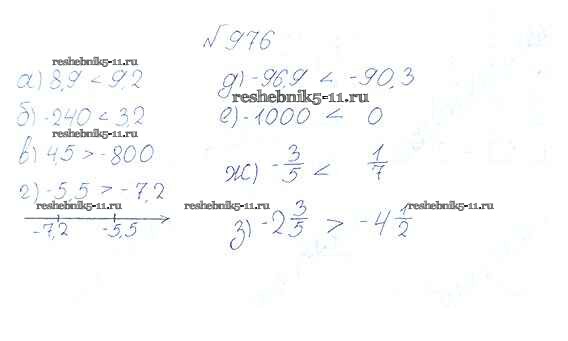 №976
reshebnik5-11.ru
reshebnik5-11.ru
а) 8,9 < 9,2
д) -96,9 < -90,3
reshebnik5-11.ru
б) -240 < 3,2
е) -1000 < 0
reshebnik5-11.ru
в) 4,5 > -800
ж) -3/5 < 1/7
г) -5,5 > -7,2
reshebnik5-11.ru
reshebnik5-11.ru
reshebnik5-11.ru
-7,2 -5,5
з) -2 3/5 > -4 1/2